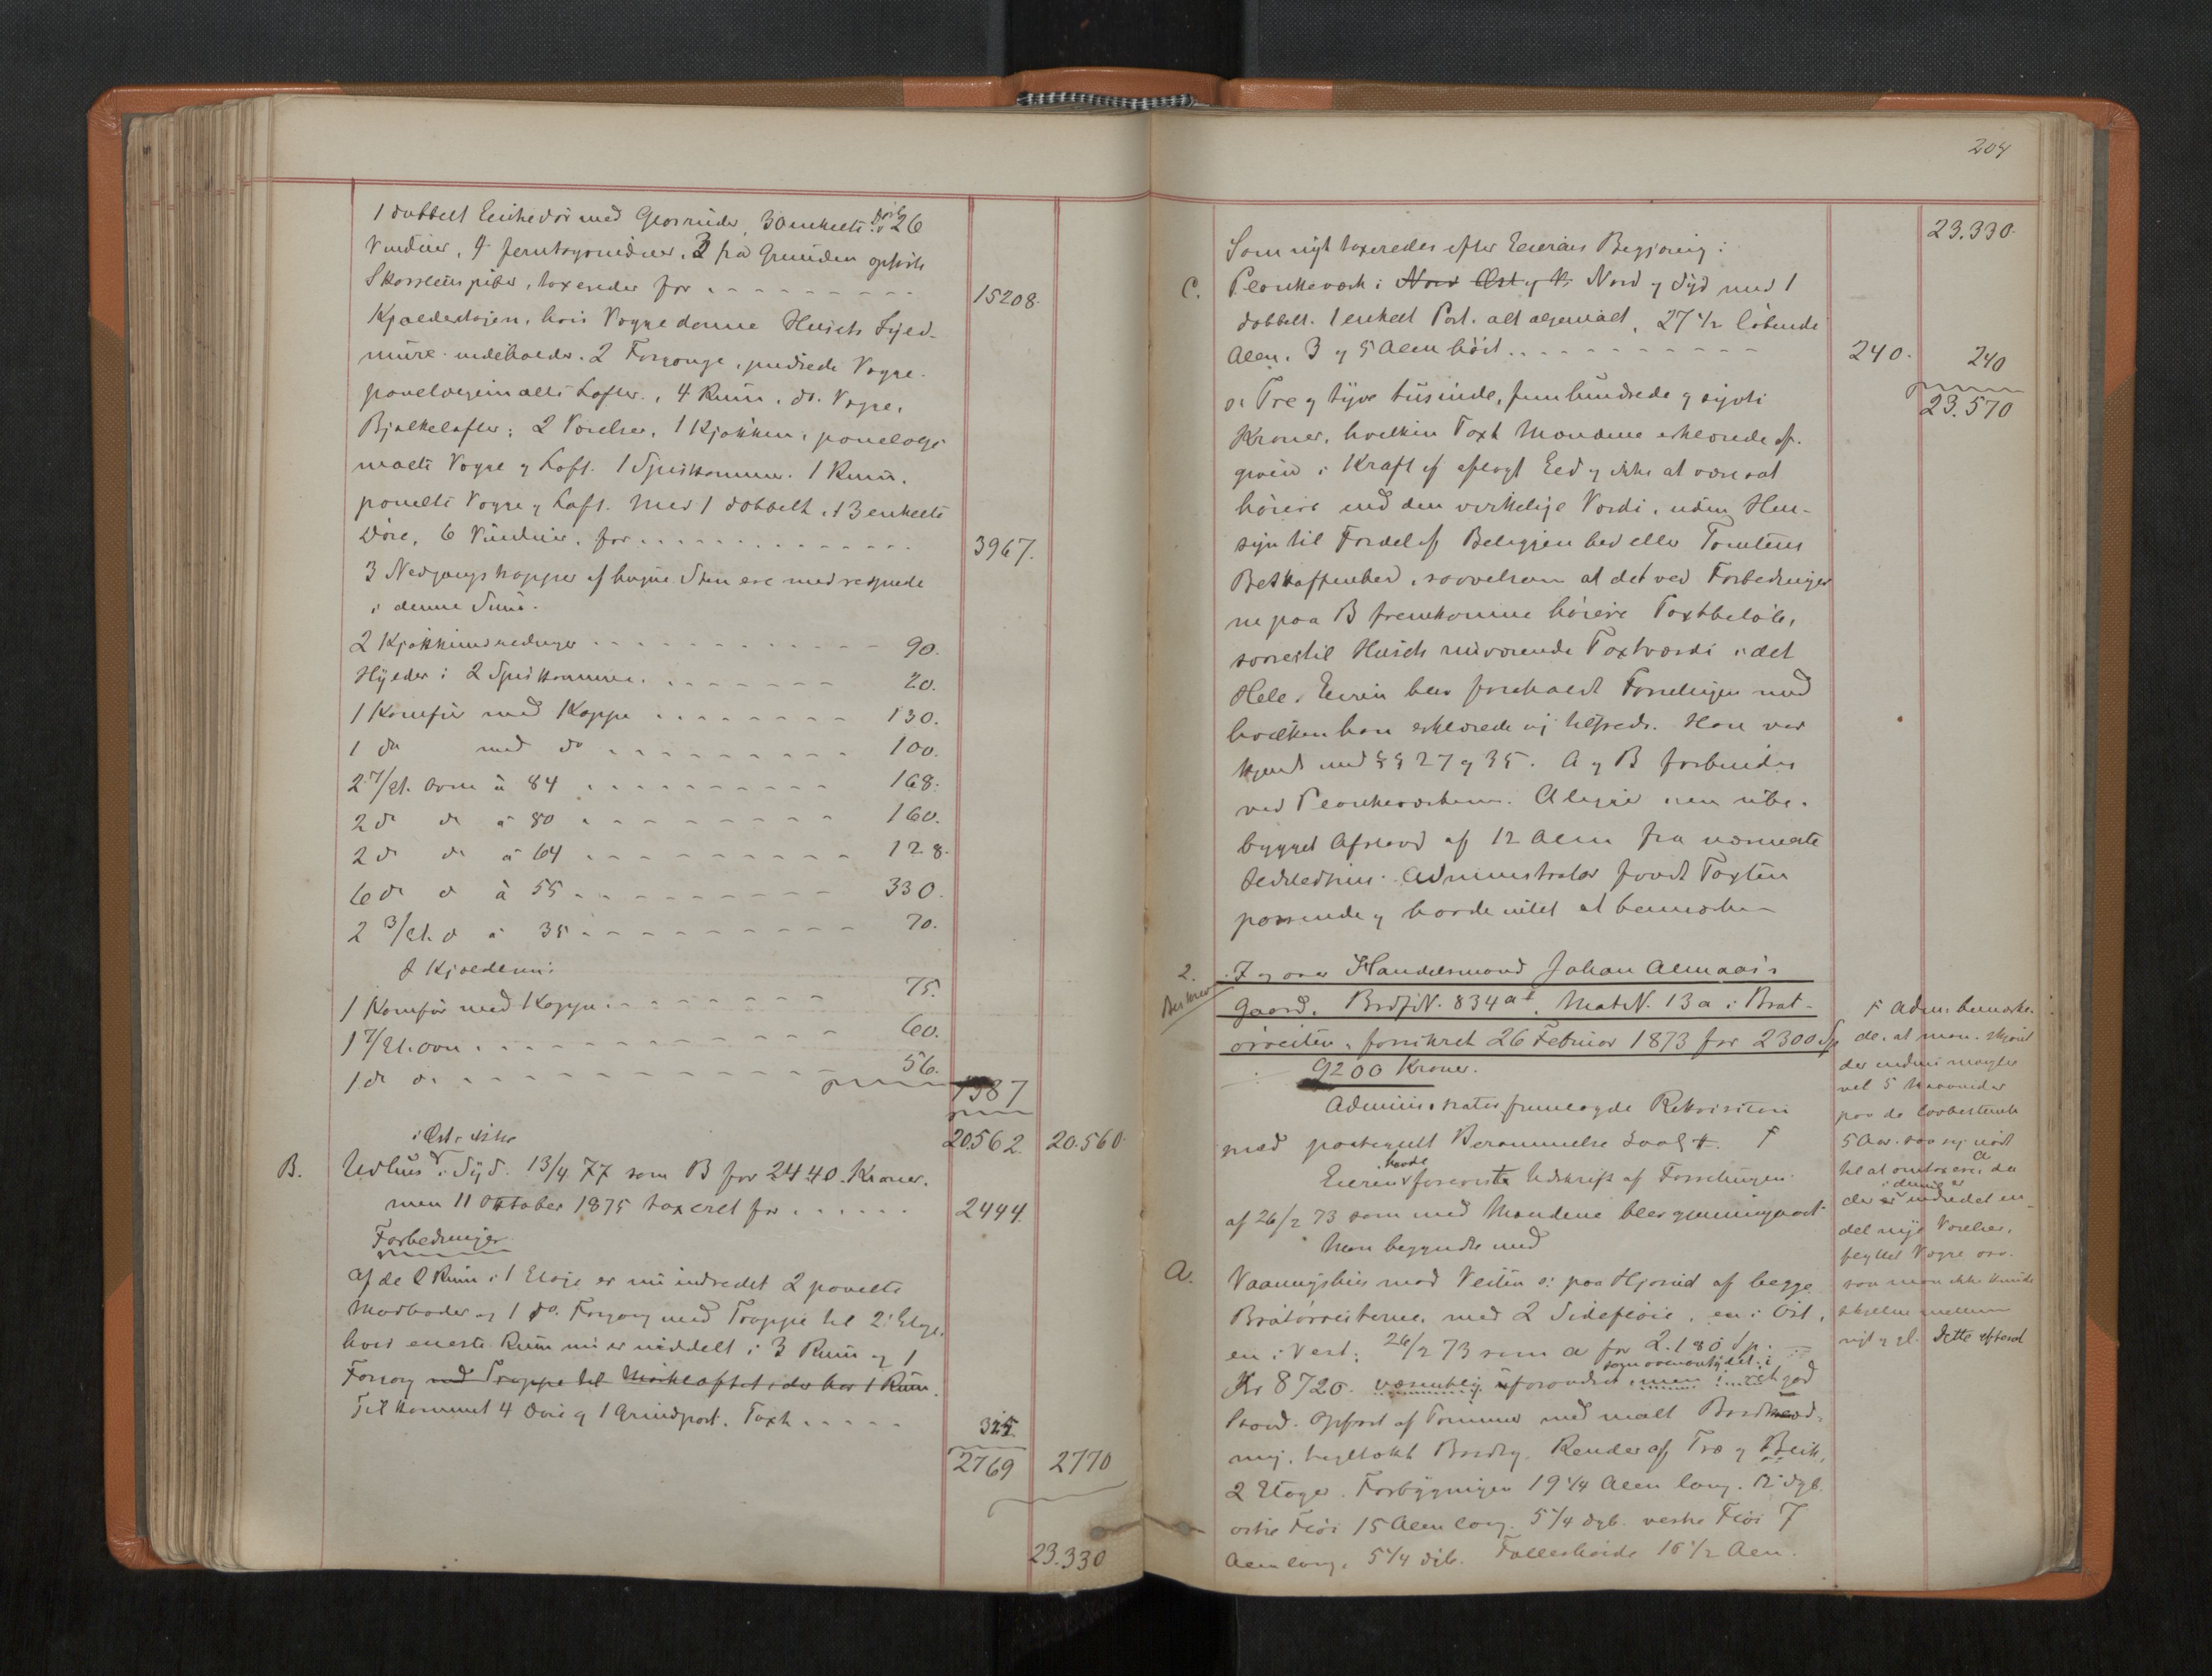 1 dobbelt Eenkedør med Glasruder, 30 enkelte Døre 26
Vinduer, 4 femtagsruder. 3 fra Grunden opførte
Skorsteenspiber, taxeredes for 15208.
Kjælderetagen, hvis Vægge danne Husets Fyld-
mure indeholder. 2 Forgange, pudsede Vægge.
panelvegne malte Lofter, 4 Rum, do. Vægge,
Bjælkelofter; 2 Værelser, 1 Kjøkken, panelede
malte Vægge og Loft. 1 Spiskammer. 1 Rum.
panelte Vægge og Loft. Med 1 dobbelt, 13 enkelte
Døre, 6 Vinduer, for 3967.
3 Nedgangstrapper af hugne Sten ere medregnede
i denne Sum.
2 Kjøkkenindredninger 90.
Hylder i 2 Spiskammere 20.
1 Komfur med Kappe 130.
1 do med do 100.
2 7/Et. Ovne à 84 168.
2 do do à 80 160.
2 do do à 64 128.
6 do do à 55 330.
2 3/Et. do à 35 70.
I Kjælderen:
1 Komfur med Kappe 75.
1 7/Et. ovn 60.
1 do do 56.
1387
20.562. 20.560.
i Øst, ikke
B. Udhus i Syd. 13/4 77 som B for 2440 Kroner.
men 11 Oktober 1875 taxeret for 2444.
Forbedringer
Af de 2 Rum i 1 Etage er nu indredet 2 panelte
Madboder og 1 do. Forgang med Trappe til 2. Etage,
hvis eneste Rum nu er inddelt i 3 Rum og 1
Forgang med Trappe til Mørkloftet, der har 1 Rum.
Tilkommet 4 Døre og 1 Grindport. Taxt 325.
2769 2770
23.330
204
23.330.
Som nyt taxeredes efter Eierens Begjæring:
C. Plankeværk i Nord Øst og V. Nord og Syd med 1
dobbelt. 1 enkelt Port. alt oljemalt, 27 1/2 løbende
Alen. 3 og 5 Alen høit 240. 240
23.570
o: Tre og tyve tusinde, fem hundrede og sytti
Kroner, hvilken Taxt Mændene erklærede af-
given i Kraft af aflagt Eed og ikke at være sat
høiere end den virkelige Værdi, uden Hen-
syn til Fordel af Beliggenhed eller Tomtens
Beskaffenhed, saavelsom at det ved Forbedringer-
ne paa B fremkomne høiere Taxtbeløb,
svarer til Husets nuværende Taxtværdi i det
Hele. Eieren blev foreholdt Forretningen med
hvilken han erklærede sig tilfreds. Han var
kjendt med §§ 27 og 35. A og B forbindes
ved Plankeværkerne. A ligger i en ube-
bygget Afstand af 12 Alen fra nærmeste
Ildstedhus. Administrator fandt Taxten
passende og havde intet at bemærke
2. I og over Handelsmand Johan Almaas's
Gaard. BrdfN. 834 a1, MatrN. 13a i Brat-
ørveiten, forsikret 26 Februar 1873 for 2300 Sp
9200 Kroner.
Administrator fremlagde Rekvisition
med paategnet Berammelse
Eieren havde foreviste Udskrift af Forretningen
af 26/2 73 som med Mændene blev gjennemgaaet.
Man begyndte med
A. Vaaningshus mod Veiten o: paa Hjørnet af begge
Bratørveiterne, med 2 Sidefløie, en i Øst,
en i Vest; 26/2 73 som a for 2.180 Sp.
Kr 8720. væsentlig uforandret, men i ret god
Stand. Opført af Tømmer med malt Bordklæd-
ning, tegltækt Bordtag, Render af Træ og Blik,
2 Etager. Forbygningen 19 1/4 Alen lang. 12 dyb.
østre Fløi 15 Alen lang, 5 1/4 dyb. vestre Fløi 7
Alen lang, 5 1/4 dyb. Fælleshøide 16 1/2 Alen.
† Adm. bemærke-
de, at man, skjønt
der endnu mangler
vel 5 Maaneder
paa de lovbestemte
5 Aar, saa sig nødt
til at omtaxere a, da
der i denne er indredet en
del nye Værelser,
flyttet Vægge osv.
saa man ikke kunde
skjelne mellem
nyt og gl. Dette